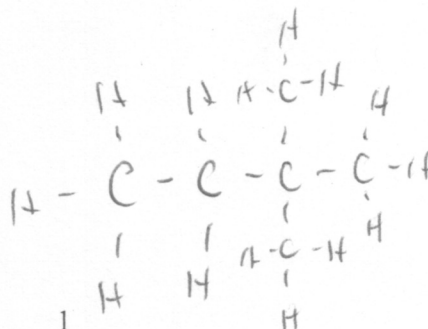 H
H H H-C-H H
H - C - C - C - C - H
H H H-C-H H
H